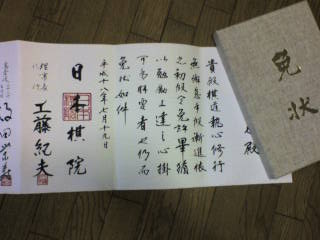 免状
殿
貴殿棋道熱心修行
無懈怠手段漸進依
之初段令免許畢猶
以勉勵上達之心掛
可為肝要者也仍而
免状如件
平成十八年七月十九日
日本棋院
理事長
工藤紀夫